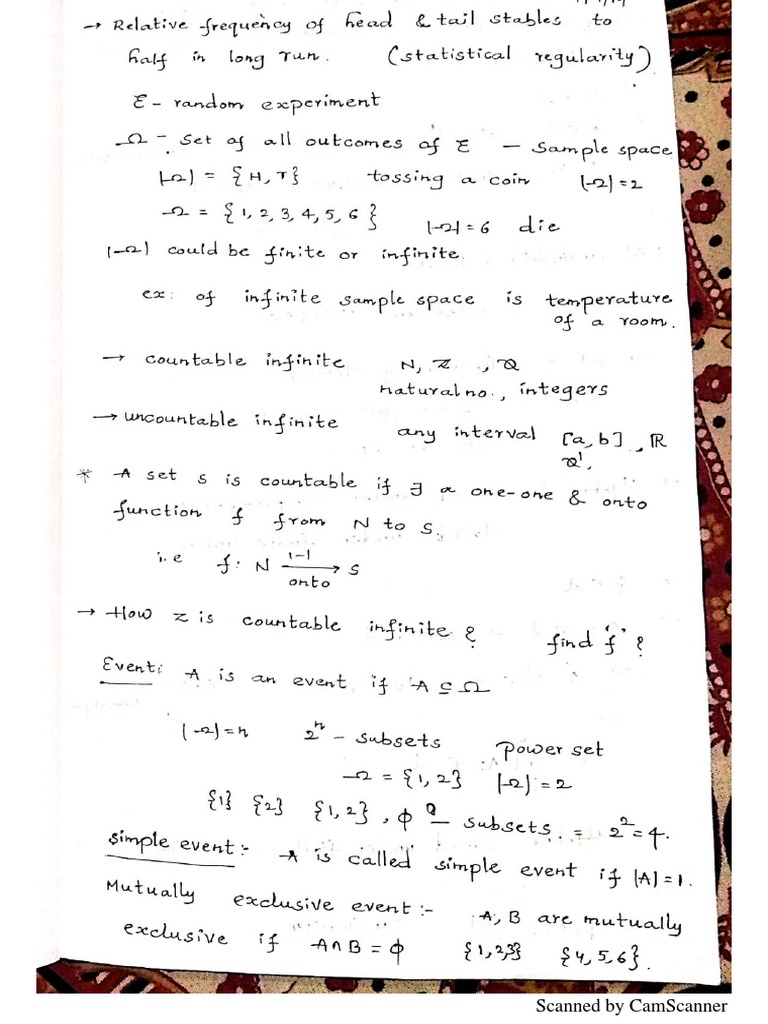 → Relative frequency of head & tail stables to
half in long run. (statistical regularity)
Ɛ - random experiment
Ω - set of all outcomes of Ɛ - sample space
|Ω| = {H, T} tossing a coin |Ω| = 2
Ω = {1, 2, 3, 4, 5, 6} |Ω| = 6 die
|Ω| could be finite or infinite.
ex: of infinite sample space is temperature
of a room.
→ countable infinite N, Z, Q
natural no., integers
→ uncountable infinite any interval [a, b], R
Q',
* A set s is countable if ∃ a one-one & onto
function f from N to S.
i.e f: N 1-1 → S
onto
→ How Z is countable infinite? find 'f'?
Event: A is an event if A ⊆ Ω
|Ω| = n 2ⁿ - subsets power set
Ω = {1, 2} |Ω| = 2
{1} {2} {1, 2}, φ - subsets = 2² = 4.
simple event:- A is called simple event if |A| = 1.
Mutually exclusive event:- A, B are mutually
exclusive if A∩B = φ {1, 2, 3} {4, 5, 6}.
Scanned by CamScanner